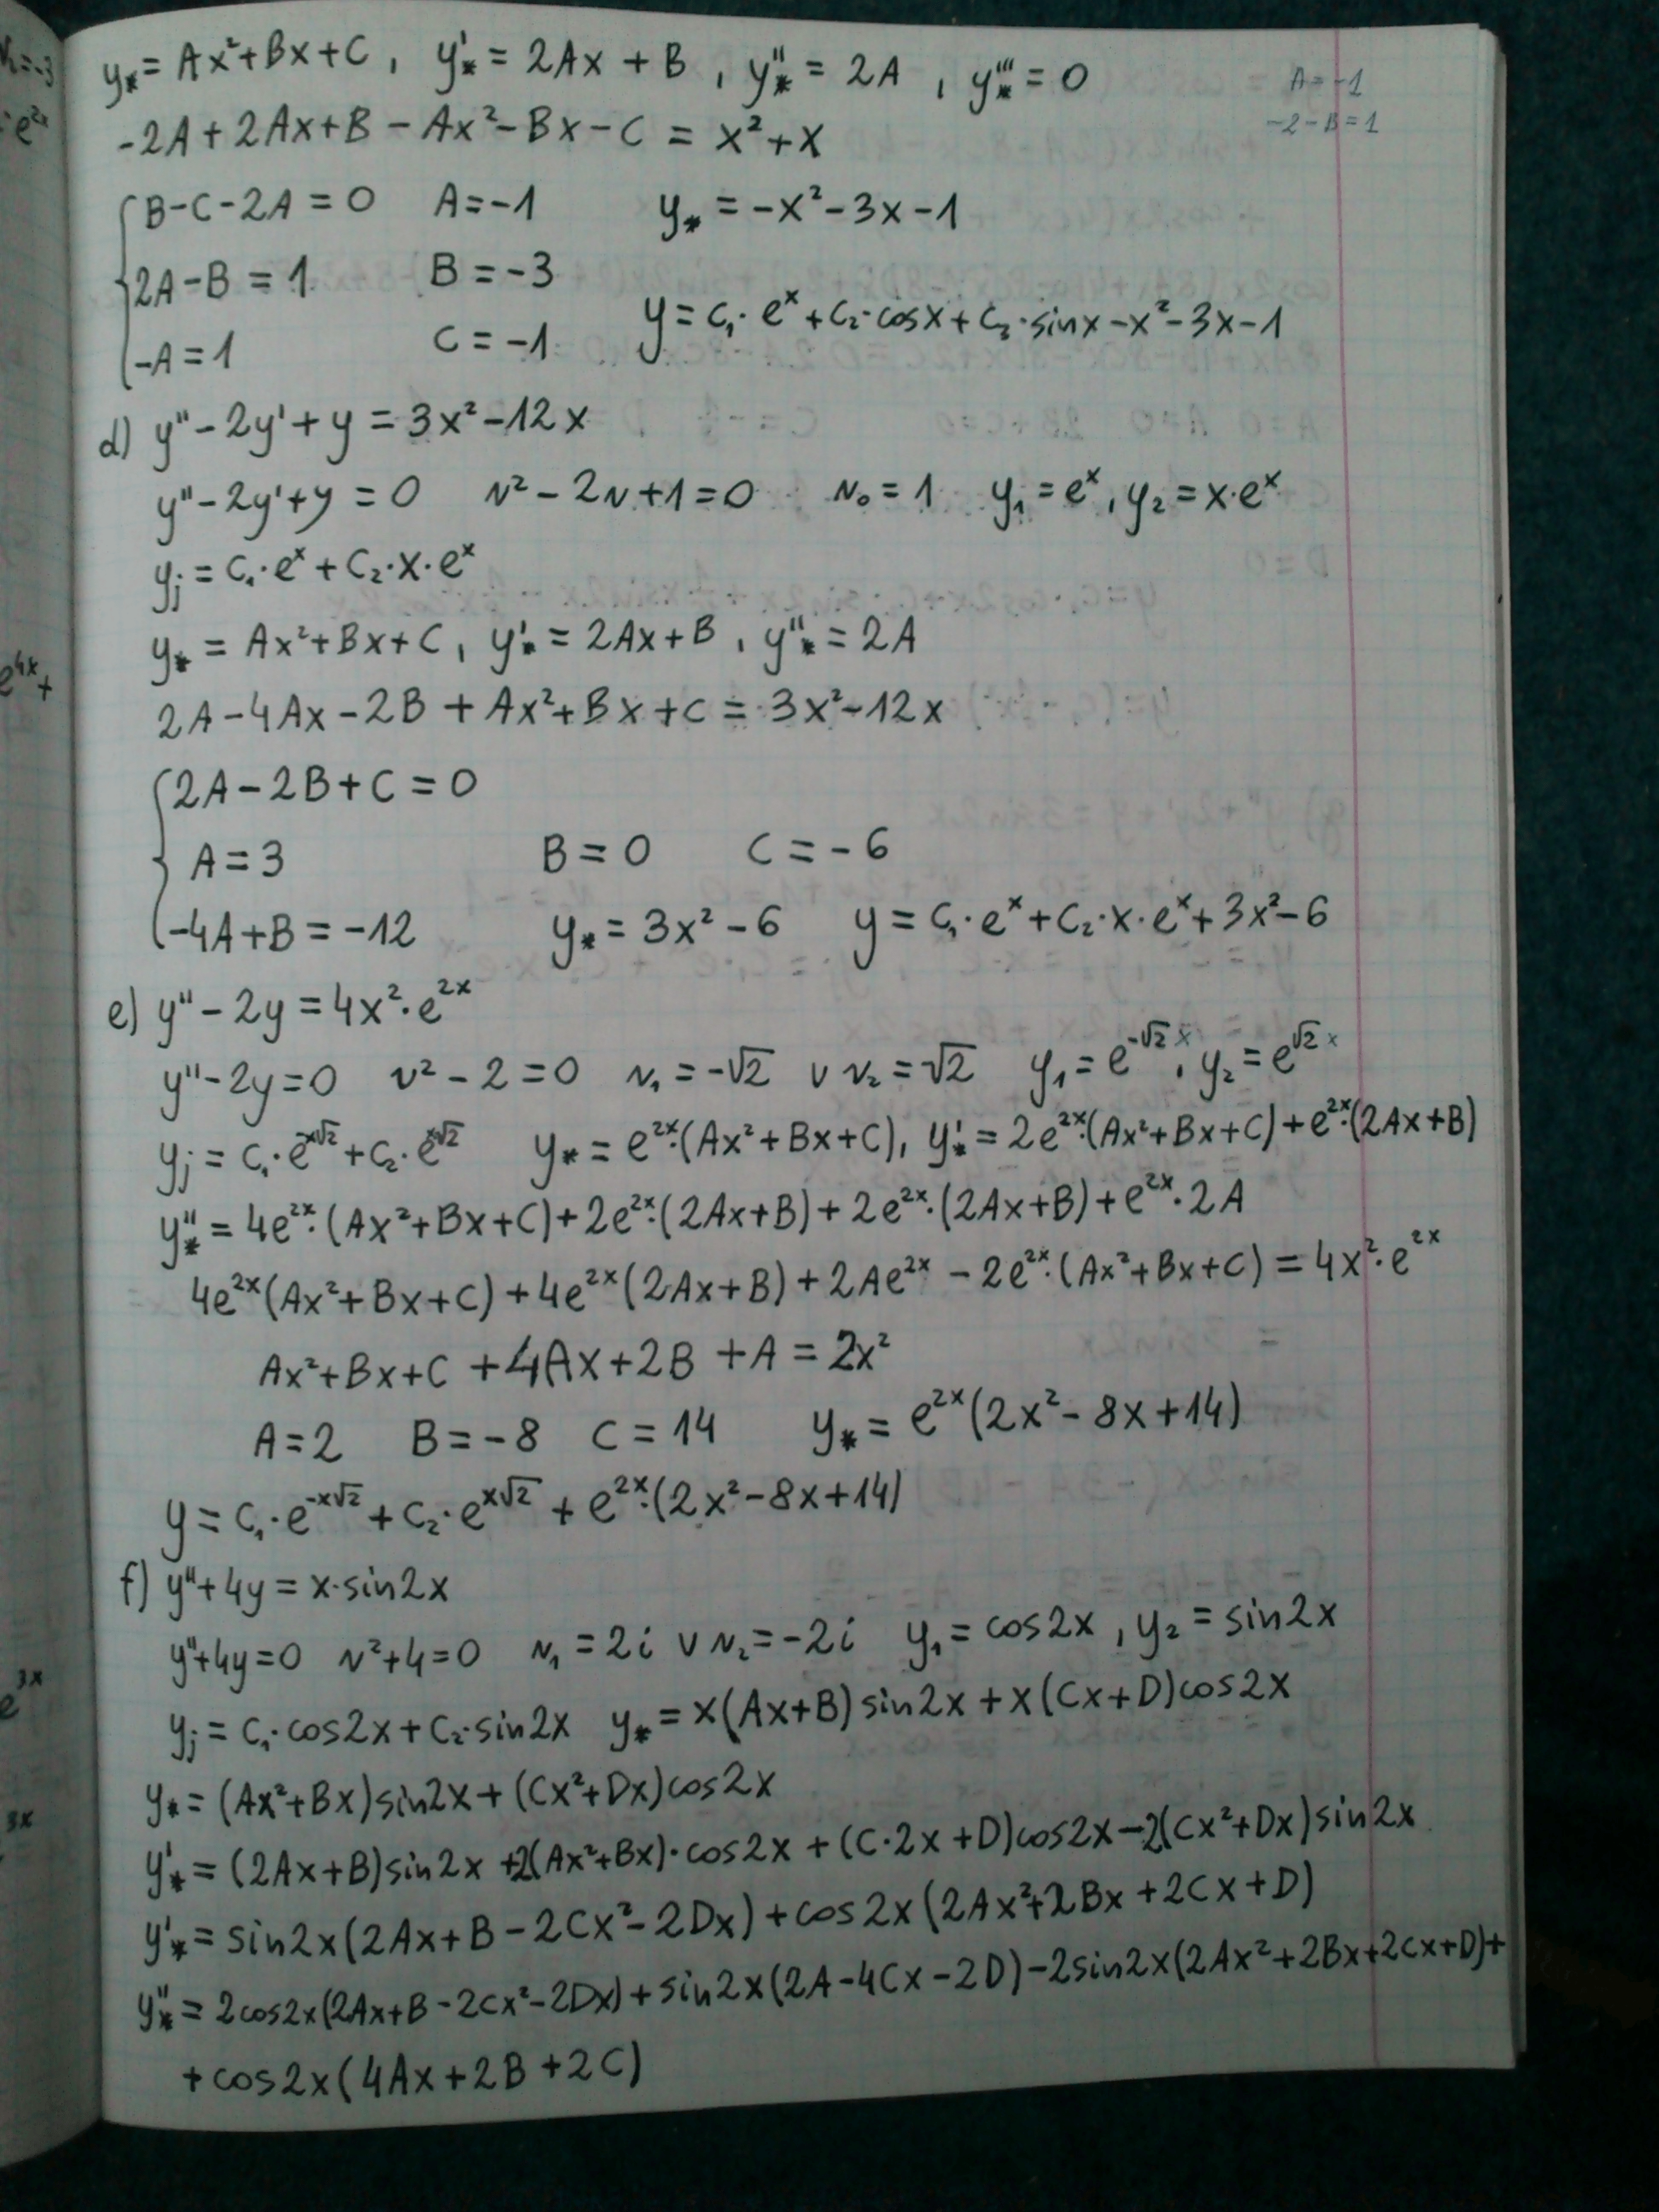 y* = Ax²+Bx+C , y*' = 2Ax + B , y*'' = 2A , y*''' = 0
A=-1
-2-B=1
-2A + 2Ax+B - Ax²-Bx-C = x²+x
B-C-2A = 0 A=-1 y* = -x²-3x-1
2A-B = 1 B = -3
y = C₁·eˣ+C₂·cosx+C₃·sinx-x²-3x-1
-A = 1 C = -1
d) y''-2y'+y = 3x²-12x
y''-2y'+y = 0 r²-2r+1=0 r₀=1 y₁=eˣ, y₂=x·eˣ
yj = C₁·eˣ+C₂·x·eˣ
y* = Ax²+Bx+C, y*' = 2Ax+B, y*'' = 2A
2A-4Ax-2B+Ax²+Bx+C = 3x²-12x
2A-2B+C=0
A=3 B=0 C=-6
-4A+B=-12 y* = 3x²-6 y = C₁·eˣ+C₂·x·eˣ+3x²-6
e) y''-2y = 4x²·e²ˣ
y''-2y=0 r²-2=0 r₁=-√2 v r₂=√2 y₁=e^(-√2 x), y₂=e^(√2 x)
yj = C₁·e^(-x√2)+C₂·e^(x√2) y* = e²ˣ·(Ax²+Bx+C), y*' = 2e²ˣ·(Ax²+Bx+C)+e²ˣ·(2Ax+B)
y*'' = 4e²ˣ·(Ax²+Bx+C)+2e²ˣ·(2Ax+B)+2e²ˣ·(2Ax+B)+e²ˣ·2A
4e²ˣ(Ax²+Bx+C)+4e²ˣ(2Ax+B)+2Ae²ˣ-2e²ˣ·(Ax²+Bx+C) = 4x²·e²ˣ
Ax²+Bx+C+4Ax+2B+A = 2x²
A=2 B=-8 C=14 y* = e²ˣ(2x²-8x+14)
y = C₁·e^(-x√2)+C₂·e^(x√2)+e²ˣ·(2x²-8x+14)
f) y''+4y = x·sin2x
y''+4y=0 r²+4=0 r₁=2i v r₂=-2i y₁=cos2x, y₂=sin2x
yj = C₁·cos2x+C₂·sin2x y* = x(Ax+B)sin2x+x(Cx+D)cos2x
y* = (Ax²+Bx)sin2x+(Cx²+Dx)cos2x
y*' = (2Ax+B)sin2x+2(Ax²+Bx)·cos2x+(C·2x+D)cos2x-2(Cx²+Dx)sin2x
y*' = sin2x(2Ax+B-2Cx²-2Dx)+cos2x(2Ax²+2Bx+2Cx+D)
y*'' = 2cos2x(2Ax+B-2Cx²-2Dx)+sin2x(2A-4Cx-2D)-2sin2x(2Ax²+2Bx+2Cx+D)+
+cos2x(4Ax+2B+2C)